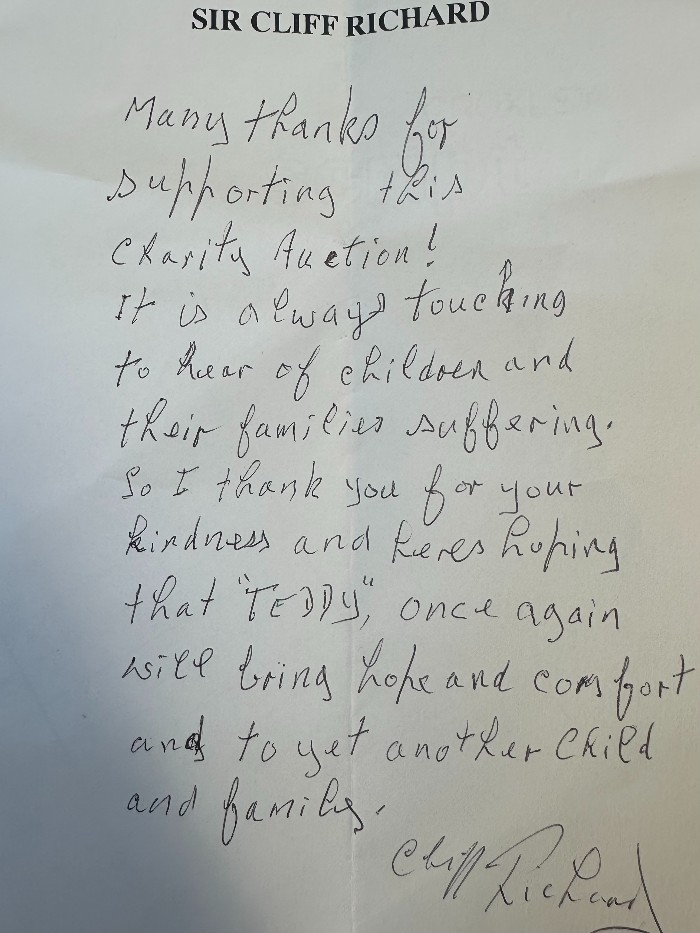 SIR CLIFF RICHARD
Many thanks for
supporting this
Charity Auction!
It is always touching
to hear of children and
their families suffering.
So I thank you for your
kindness and heres hoping
that "TEDDY", once again
will bring hope and comfort
and to yet another child
and family.
Cliff Richard